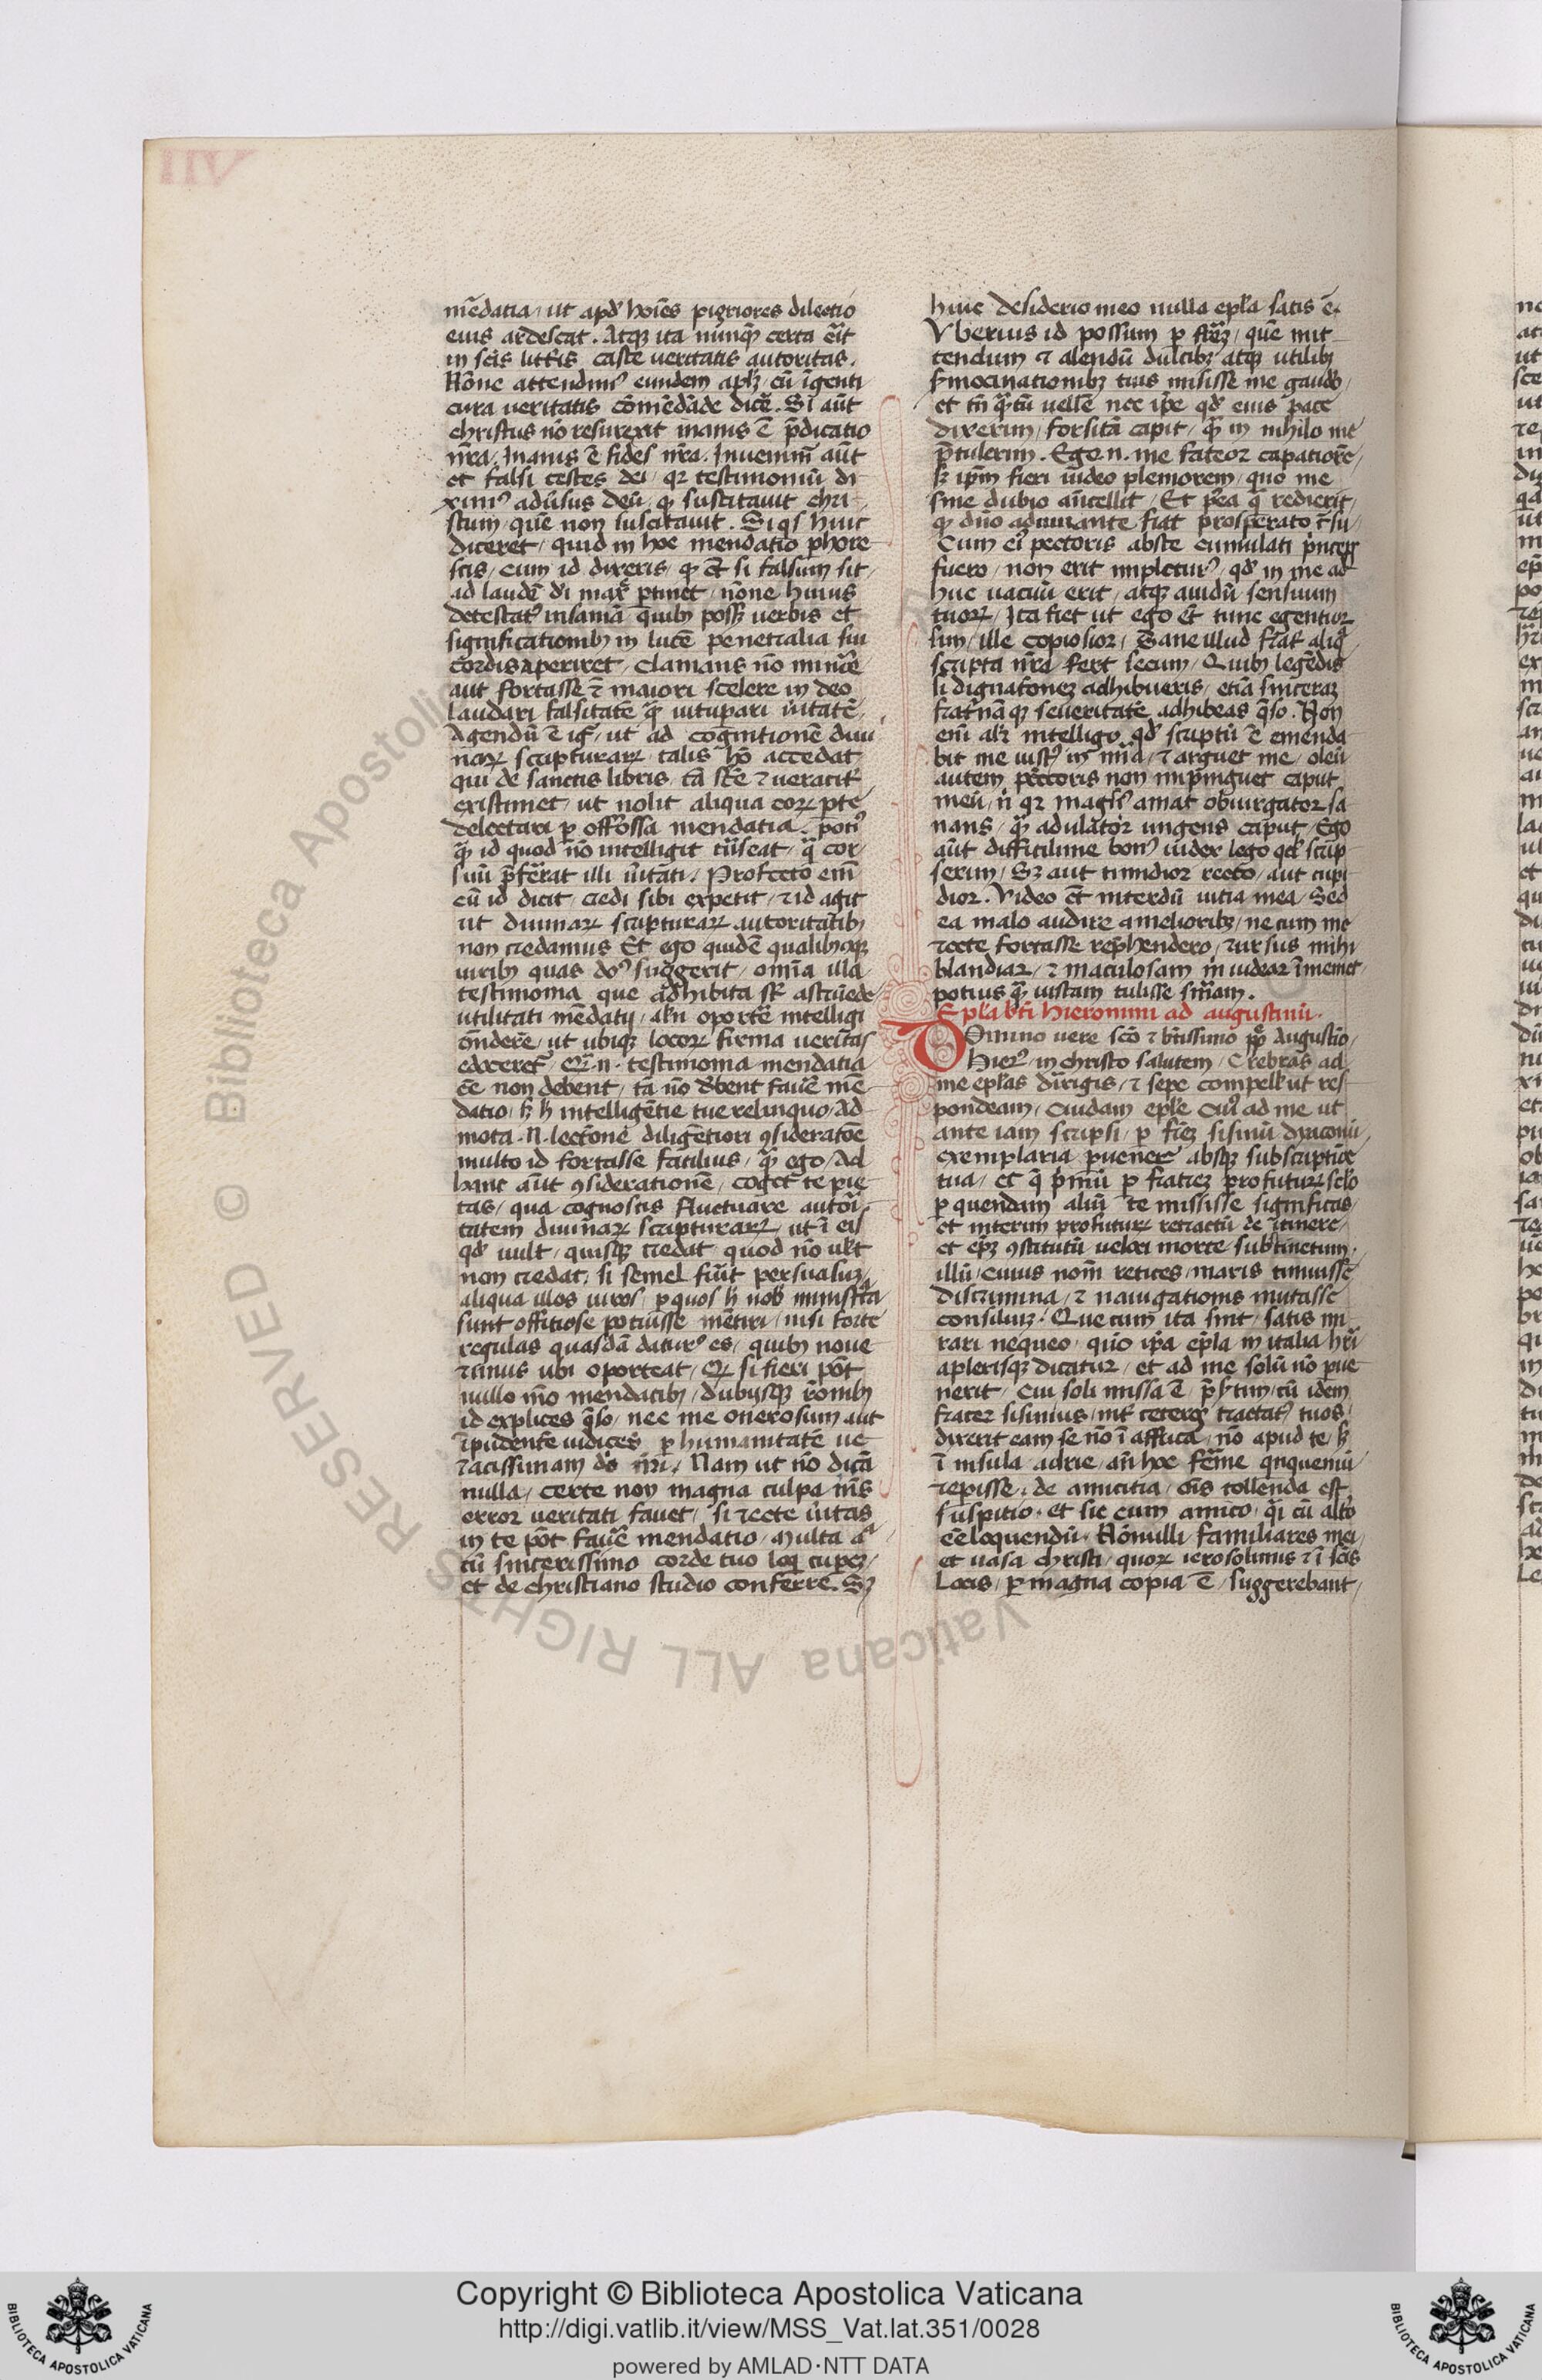 VII
mẽdatia / ut apđ hoĩes pigriores dilectio
eius ardescat . Atqꝫ ita nũnqꝫ̃ certa erĩt
in scĩs litt̃is caste ueritatis autoritas .
Nõne attendimꝰ eundem aplꝫ̃ / cũ ĩgenti
cura ueritatis cõmẽdãde dicẽ . Si aũt
christus nõ resurexit inanis ẽ p̃dicatio
nr̃a . Inanis ẽ fides nr̃a . Inuenimr̃ aũt
et falsi testes dei / qꝛ testimoniũ di
ximꝰ adũsus deũ / ꝙ suscitauit chri
stum / quẽ non suscitauit . Si qͥs huic
diceret / quid in hoc mendatio ꝑhore
scis / cum id dixeris / ꝙ et̃ si falsum sit /
ad laudẽ dei maxͤ ꝑtinet / nõne huius
detestatꝰ insaniã quibꝫ possꝫ uerbis et
significationibꝫ in lucẽ penetralia sui
cordis aperiret / clamans nõ minoͬe
aut fortasse ⁊ maiori scelere in deo
laudari falsitatẽ qꝫ̃ uituꝑari ũitatẽ .
Agendũ ẽ igͭ / ut ad cognitionẽ diui
narꝝ scripturarꝝ talis hõ accedat
qui de sanctis libris tã scẽ ⁊ ueracitꝛ̃
existimet / ut nolit aliqua eorꝝ ꝑte
delectari ꝑ offitiosa mendatia . potiꝰ
qꝫ̃ id quod nõ intelligit trãseat / qꝫ̃ cor
suũ p̃ferat illi ũitati / Profecto enĩ
cũ id dicit / credi sibi expetit / ⁊ id agit
ut diuinarꝝ scripturarꝝ autoritatibꝫ
non credamus Et ego quidẽ qualibuscqꝫ
uiribꝫ quas dñs suggerit / omĩa illa
testimonia que adhibita sꝉ̃ astruẽde
utilitati mẽdatij / alr̃ oportẽ intelligi
õnderẽ / ut ubiqꝫ locorꝝ firma ueritas
edoceretꝛ̃ / Qꝛ̃ . n . testimonia mendatia
eẽ non debent / tã nõ đbent fauẽ mẽ
datio / sꝫ h̃ intelligẽtie tue relinquo / Ad
mota . n . lectõne diligẽtiori ꝯsideratõe
multo id fortasse facilius / qꝫ̃ ego / Ad
hanc aũt ꝯsiderationẽ / coget te pie
tas / qua cognoscis fluctuare autori
tatem diuinarꝝ scripturarꝝ / ut ĩ eis
qđ uult / quisqꝫ credat / quod nõ ult
non credat / si semel fũit persuasuꝫ /
aliqua illos uiros / ꝑ quos h̃ nob̃ ministᵃta
sunt offitiose potuisse mẽtiri / nisi forte
regulas quasdã daturꝰ es / quibꝫ noue
rimus ubi oporteat / Qꝛ si fieri põt
nullo mõ mendacibꝫ / dubijsqꝫ rõnibꝫ
id explices qͣso / nec me onerosum aut
ĩpudentẽ iudices / ꝑ humanitatẽ ue
racissimam dñi nr̃i / Nam ut nõ dicã
nulla / certe non magna culpa mẽs
error ueritati fauet / si recte ũitas
in te põt fauẽ mendatio / Multa aͭ
cũ sincerissimo corde tuo loqͥ cuperẽ /
et de christiano studio conferre . Sꝫ
huic desiderio meo nulla epl̃a satis ẽ .
Uberius id possum ꝑ frẽꝫ / quẽ mit
tendum ⁊ alendũ dulcibꝫ atqꝫ utilibꝫ
ẜmocinationibꝫ tuis misisse me gaudeo /
et tñ qꝫ̃tũ uellẽ nec ip̃e qđ eius pace
dixerim / forsitã capit / qꝫ̃ in nihilo me
p̃tulerim . Ego . n . me fateor capatiorẽ /
sꝫ ip̃m fieri ũideo pleniorem / quo me
sine dubio añtcellit / Et p̃ea qͣ redierit /
ꝙ dño adiuuante fiat prosperato r̃su /
Cum eiꝰ pectoris abste cumulati p̃ticeps
fuero / non erit impleturꝰ / qđ in me ad
huc uacuũ erit / atqꝫ auidũ sensuum
tuorꝝ / Ita fiet ut ego et̃ tunc egentior
sim / ille copiosior / Sane illud frat̃ aliqͣ
scripta nr̃a fert secum / Quibꝫ legẽdis
si dignatõneꝫ adhibueris / etiã sinceraꝫ
frat̃nãqꝫ seueritatẽ adhibeas qͣso . Non
enĩ alr̃ intelligo qđ scriptũ ẽ emenda
bit me iustꝰ in mĩa / ⁊ arguet me / oleũ
autem peccatoris non impinguet caput
meũ / ñ qꝛ magͥs amat obiurgator sa
nans / qꝫ̃ adulator ungens caput / Ego
aũt difficilime bonꝰ iudex lego qđ scrip
serim / Sꝫ aut timidior recto / aut cupi
dior . Video et̃ interdũ uitia mea / Sed
ea malo audire a melioribꝫ / ne cum me
recte fortasse rep̃hendero / rursus mihi
blandiar / ⁊ maculosam in iudear ĩ memet
potius qꝫ̃ iustam tulisse snĩam .
Epl̃a bti hieronimi ad augustinũ .
Domino uere scõ ⁊ btissimo pp̃ Augustĩo /
Hierꝰ / in christo salutem / Crebras ad
me epl̃as dirigis / ⁊ sepe compellis ut res
pondeam / Cuidam epl̃e cuiꝰ ad me ut
ante iam scripsi / ꝑ frẽꝫ sisiniũ dyaconũ /
exemplaria ꝑuenerũt absqꝫ subscriptiõe
tua / et qͣ p̃mũ ꝑ fratreꝫ profuturꝝ scđo
ꝑ quendam aliũ te misisse significas /
et interim profuturꝝ retractũ de ĩtinere /
et ep̃ꝫ ꝯstitutũ ueloci morte subtractum .
illũ / cuius nom̃ retices / maris timuisse
discrimina / ⁊ nauigationis mutasse
consiliuꝫ . Que cum ita sint / satis mi
rari nequeo / quõ ip̃a epl̃a in italia hr̃i
a plerisqꝫ dicatur / et ad me solũ nõ ꝑue
nerit / Cui soli missa ẽ / p̃ẜtim / cũ idem
frater sisinius / int̃ ceteros tractatꝰ tuos
dixerit eam se nõ ĩ affrica / nõ apud te / sꝫ
ĩ insula adrie / añ hoc ferme qͥnqueniũ
repisse / de amicitia / oĩs tollenda est
suspitio . et sic cum amico / qͣi cũ alt̃o
eẽ loquendũ . Nõnulli familiares mei
et uasa christi / quorꝝ ierosolimis ⁊ ĩ scĩs
Locis / ꝑ magna copia ẽ / suggerebant /
Copyright © Biblioteca Apostolica Vaticana
http://digi.vatlib.it/view/MSS_Vat.lat.351/0028
powered by AMLAD·NTT DATA
BIBLIOTECA APOSTOLICA VATICANA
BIBLIOTECA APOSTOLICA VATICANA
© Biblioteca Apostolica Vaticana ALL RIGHTS RESERVED